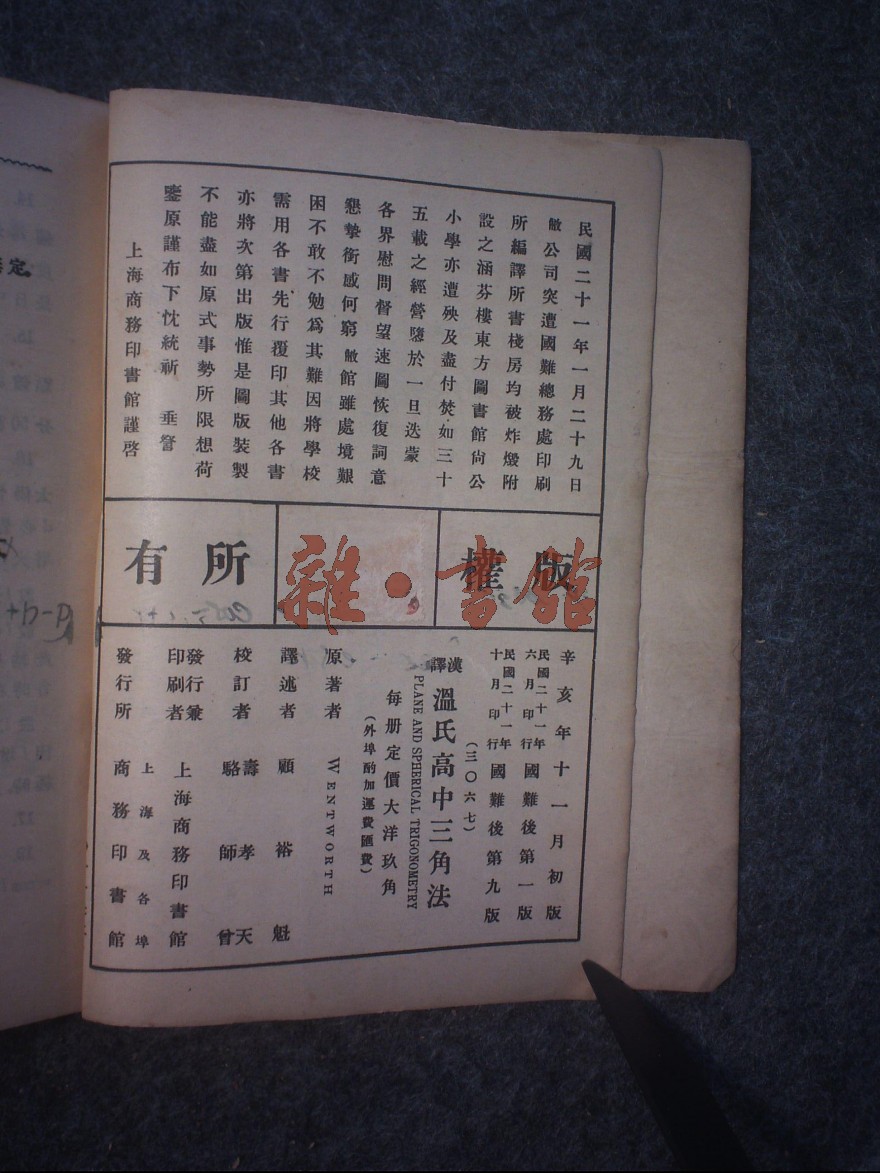 民國二十一年一月二十九日
敝公司突遭國難總務處印刷
所編譯所書棧房均被炸燬附
設之涵芬樓東方圖書館尙公
小學亦遭殃及盡付焚如三十
五載之經營隳於一旦迭蒙
各界慰問督望速圖恢復詞意
懇摯銜感何窮敝館雖處境艱
困不敢不勉爲其難因將學校
需用各書先行覆印其他各書
亦將次第出版惟是圖版裝製
不能盡如原式事勢所限想荷
鑒原謹布下忱統祈 垂詧
上海商務印書館謹啓
版權
所有
雜·書館
辛亥年十一月初版
民國二十一年六月印行國難後第一版
民國二十一年十月印行國難後第九版
(三〇六七)
漢譯溫氏高中三角法
PLANE AND SPHERICAL TRIGONOMETRY
每册定價大洋玖角
(外埠酌加運費匯費)
原著者 WENTWORTH
譯述者 顧裕魁
校訂者 壽孝天 駱師曾
發行兼印刷者 上海商務印書館
發行所 上海及各埠 商務印書館
定